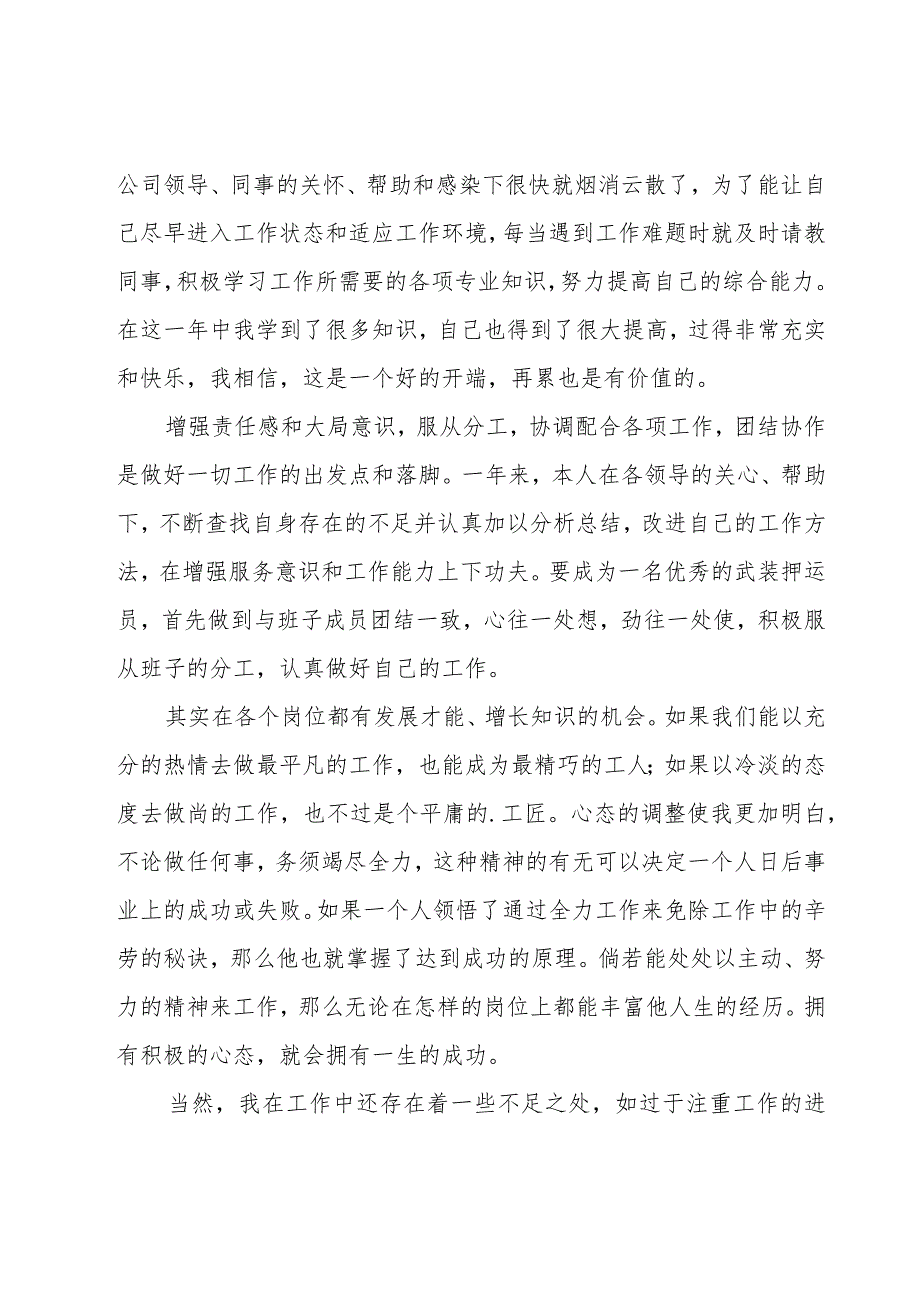 公司领导、同事的关怀、帮助和感染下很快就烟消云散了，为了能让自
己尽早进入工作状态和适应工作环境，每当遇到工作难题时就及时请教
同事，积极学习工作所需要的各项专业知识，努力提高自己的综合能力。
在这一年中我学到了很多知识，自己也得到了很大提高，过得非常充实
和快乐，我相信，这是一个好的开端，再累也是有价值的。
增强责任感和大局意识，服从分工，协调配合各项工作，团结协作
是做好一切工作的出发点和落脚。一年来，本人在各领导的关心、帮助
下，不断查找自身存在的不足并认真加以分析总结，改进自己的工作方
法，在增强服务意识和工作能力上下功夫。要成为一名优秀的武装押运
员，首先做到与班子成员团结一致，心往一处想，劲往一处使，积极服
从班子的分工，认真做好自己的工作。
其实在各个岗位都有发展才能、增长知识的机会。如果我们能以充
分的热情去做最平凡的工作，也能成为最精巧的工人；如果以冷淡的态
度去做尚的工作，也不过是个平庸的.工匠。心态的调整使我更加明白，
不论做任何事，务须竭尽全力，这种精神的有无可以决定一个人日后事
业上的成功或失败。如果一个人领悟了通过全力工作来免除工作中的辛
劳的秘诀，那么他也就掌握了达到成功的原理。倘若能处处以主动、努
力的精神来工作，那么无论在怎样的岗位上都能丰富他人生的经历。拥
有积极的心态，就会拥有一生的成功。
当然，我在工作中还存在着一些不足之处，如过于注重工作的进